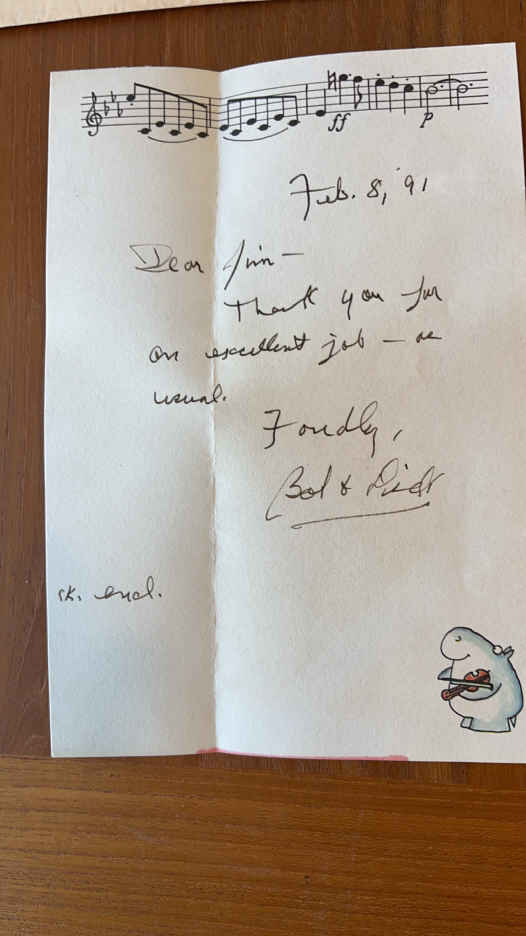 ff p
Feb. 8, '91
Dear Jim —
Thank you for
an excellent job — as
usual.
Fondly,
Bob &
ck. encl.